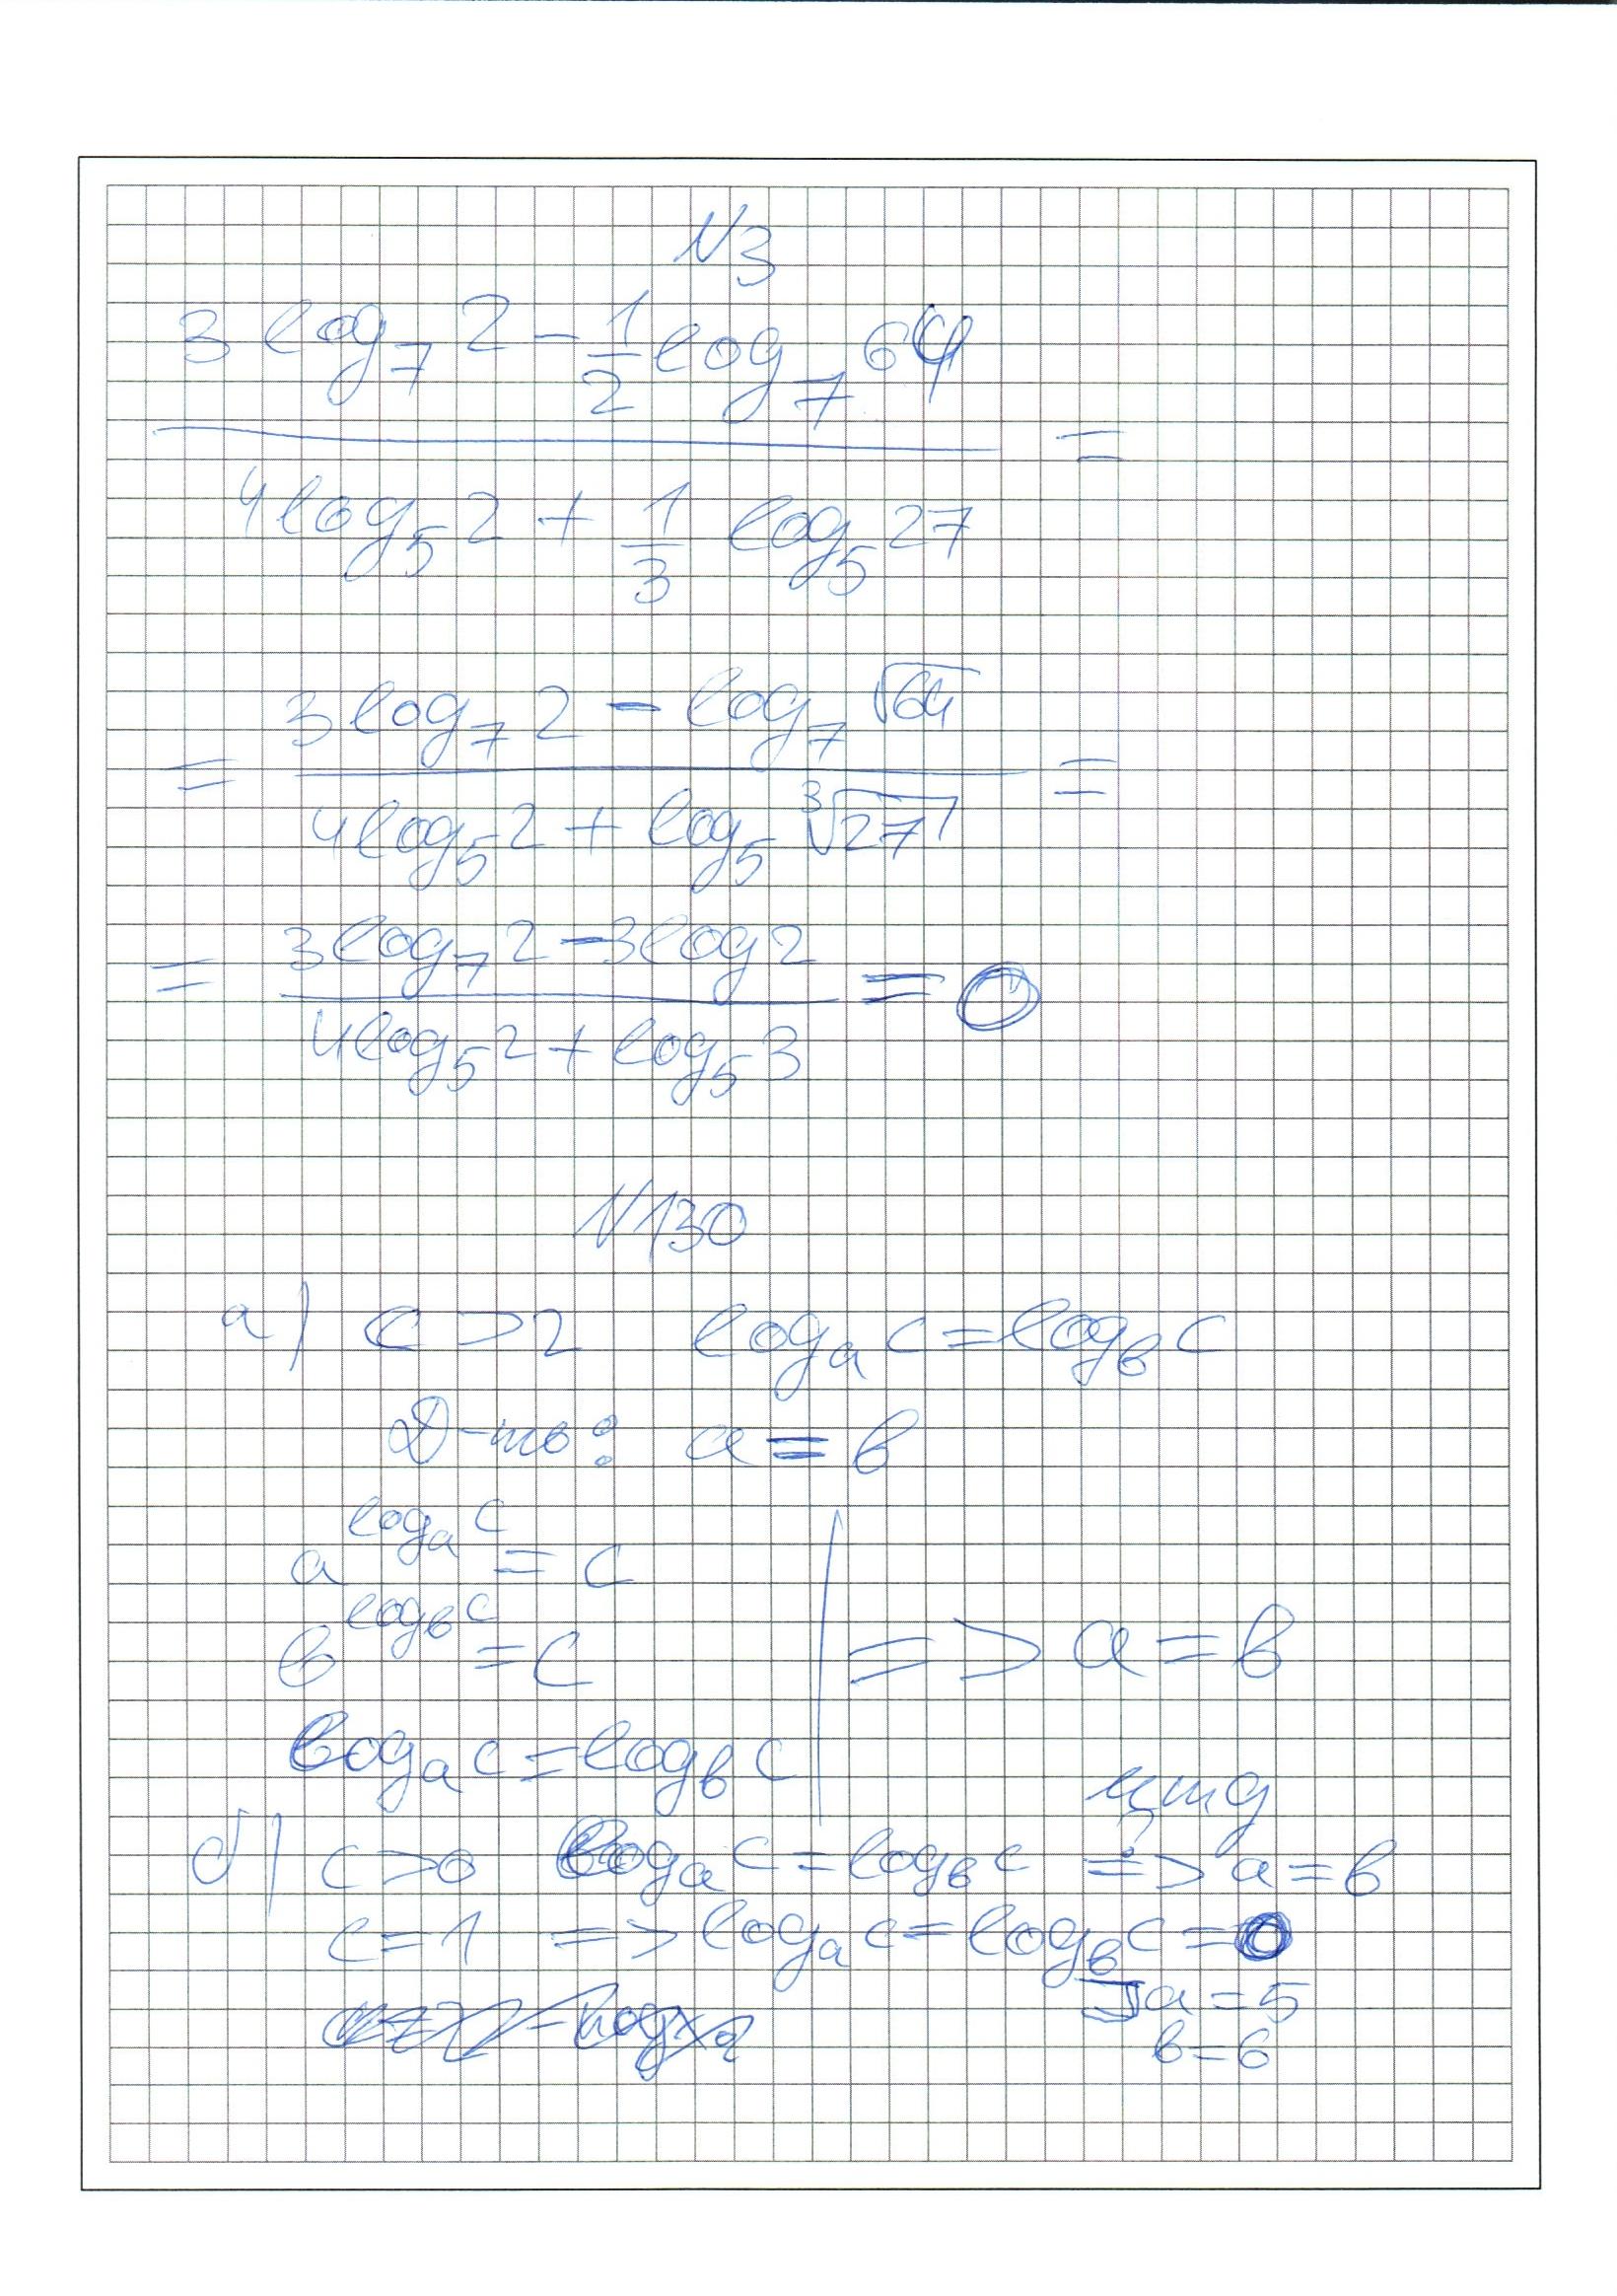 N3
3 log₇ 2 - 1/2 log₇ 64
=
4 log₅ 2 + 1/3 log₅ 27
3 log₇ 2 - log₇ √64
= =
4 log₅ 2 + log₅ ³√27
3 log₇ 2 - 3 log 2
= = 0
4 log₅ 2 + log₅ 3
N130
а) c > 2 logₐ c = log_в c
Д-ть: a = в
a^(logₐ c) = c
в^(log_в c) = c => a = в
logₐ c = log_в c
цтд
б) c > 0 logₐ c = log_в c => a = в
?
c = 1 => logₐ c = log_в c = 0
a = 5
в = 6